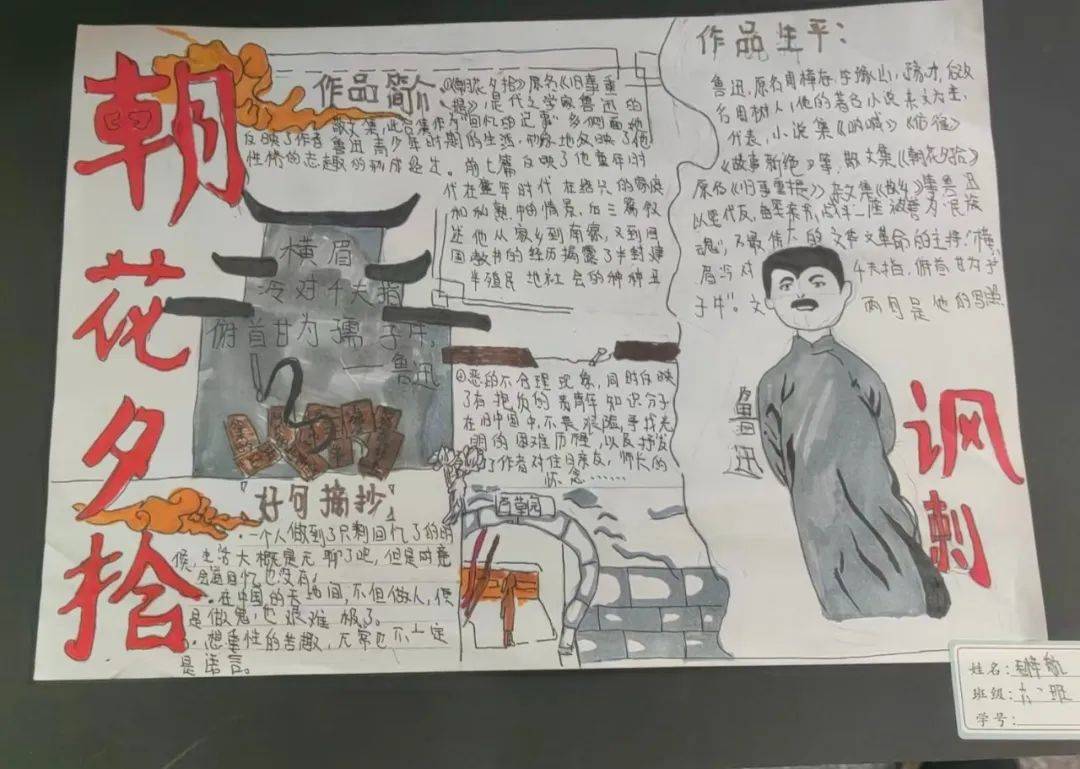 朝花夕拾
作品简介
《朝花夕拾》原名《旧事重
提》,是代文学家鲁迅的
散文集,此合集作为"回忆的记事"多侧面地
反映了作者鲁迅青少年时期的生活,形象地反映了他
性格的志趣的形成经过。前七篇反映了他童年时
代在童年时代在绍兴的家庭
和私熟中的情景,后三篇叙
述他从家乡到南京,又到回
国教书的经历揭露了半封建
半殖民地社会的种种丑
恶的不合理现象,同时反映
了有抱负的青年知识分子
在旧中国中,不畏艰险,寻找光
明的困难历程,以及抒发
了作者对往日亲友,师长的
怀念……
横眉
冷对千夫指
俯首甘为孺子牛,
——鲁迅
『好句摘抄』
·一个人做到了只剩回忆了的时
候,生活大概是无聊了吧,但是时竟
会连回忆也没有。
·在中国的天地间,不但做人,便
是做鬼,也艰难极了。
百草园
作品生平:
鲁迅,原名周樟寿,字豫山,豫才,后改
名周树人,他的著名小说
代表,小说集《呐喊》《彷徨》
《故事新编》等,散文集《朝花夕拾》
原名《旧事重提》,杂文集《故乡》等鲁迅
被誉为"民族
魂",不最伟大的文革文革命的主持,"横
眉冷对千夫指,俯首甘为
子牛"。文 两句是他的写照
鲁迅
讽刺
姓名:
班级:六二班
学号: